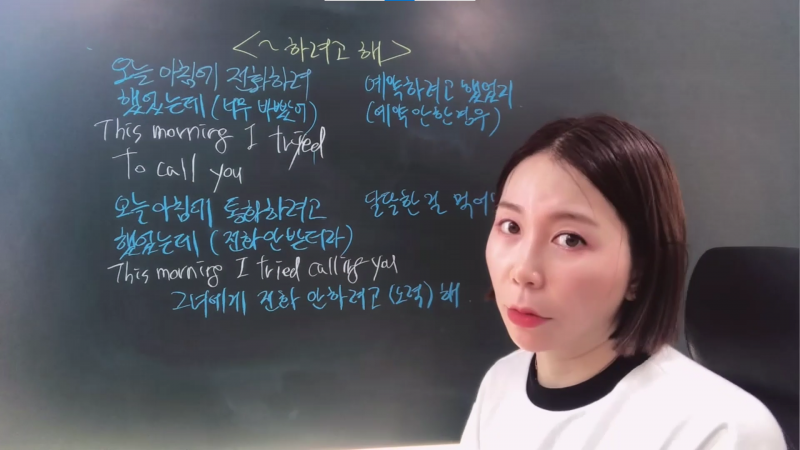 <~하려고 해>
오늘 아침에 전화하려
했었는데 (너무 바빴어)
This morning I tryed
To call you
오늘아침에 통화하려고
했었는데 (전화안받더라)
This morning I tried calling you
그녀에게 전화 안하려고 (노력) 해
예약하려고 했었지
(예약안한경우)
달달한 걸 먹어